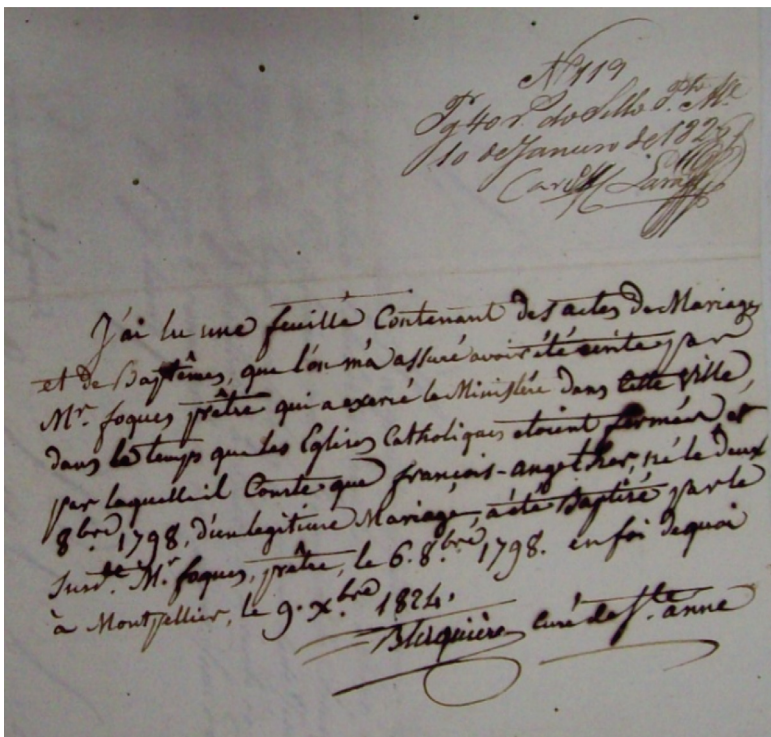 Nº 119
Pg 40 r.s do Sello
10 de Janeiro de 182
J'ai lu une feuille Contenant des actes de Mariages
et de Baptêmes, que l'on m'a assuré avoir été écrite par
Mr. foques prêtre qui a exercé le Ministère dans Cette Ville,
dans le temps que les Eglises Catholiques étoient fermées et
par laquelle il Conste que françois-ange ther, né le deux
8bre 1798, d'un legitime Mariage, a été Baptisé par le
Susdt. Mr. foques, prêtre, le 6. 8bre 1798. en foi de quoi
à Montpellier, le 9. Xbre 1824.
Blaquière curé de Ste anne